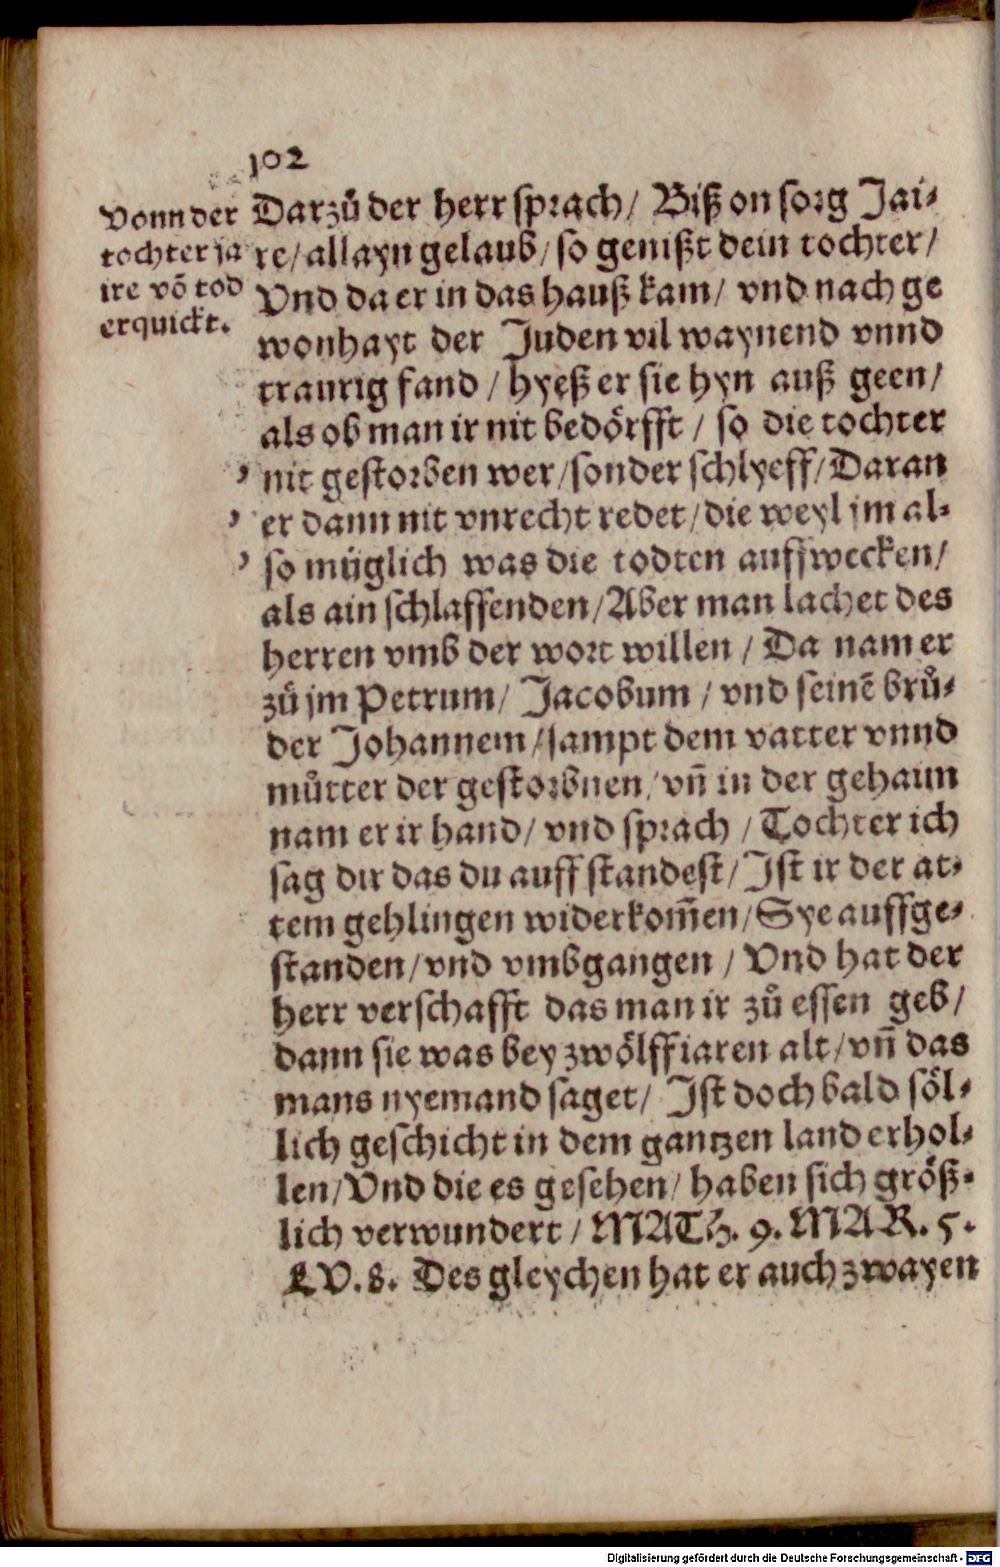 102
Vonn der
tochter ja
ire võ tod
erquickt.
Darzů der herr sprach/ Biß on sorg Jai-
re/ allayn gelaub/ so genißt dein tochter/
Vnd da er in das hauß kam/ vnd nach ge
wonhayt der Juden vil waynend vnnd
traurig fand / hyeß er sie hyn auß geen/
als ob man ir nit bedörfft / so die tochter
nit gestorben wer/ sonder schlyeff/ Daran
er dann nit vnrecht redet/ die weyl jm al-
so müglich was die todten auffwecken/
als ain schlaffenden/ Aber man lachet des
herren vmb der wort willen / Da nam er
zů jm Petrum/ Jacobum / vnd seinē brů-
der Johannem/ sampt dem vatter vnnd
můtter der gestorbnen/ vñ in der gehaim
nam er ir hand/ vnd sprach / Tochter ich
sag dir das du auff standest/ Ist ir der at-
tem gehlingen widerkom̃en/ Sye auffge-
standen/ vnd vmbgangen / Vnd hat der
herr verschafft das man ir zů essen geb/
dann sie was bey zwölff iaren alt/ vñ das
mans nyemand saget/ Ist doch bald söl-
lich geschicht in dem gantzen land erhol-
len/ Vnd die es gesehen/ haben sich größ-
lich verwundert / MATH. 9. MAR. 5.
LV. 8. Des gleychen hat er auch zwayen
Digitalisierung gefördert durch die Deutsche Forschungsgemeinschaft - DFG